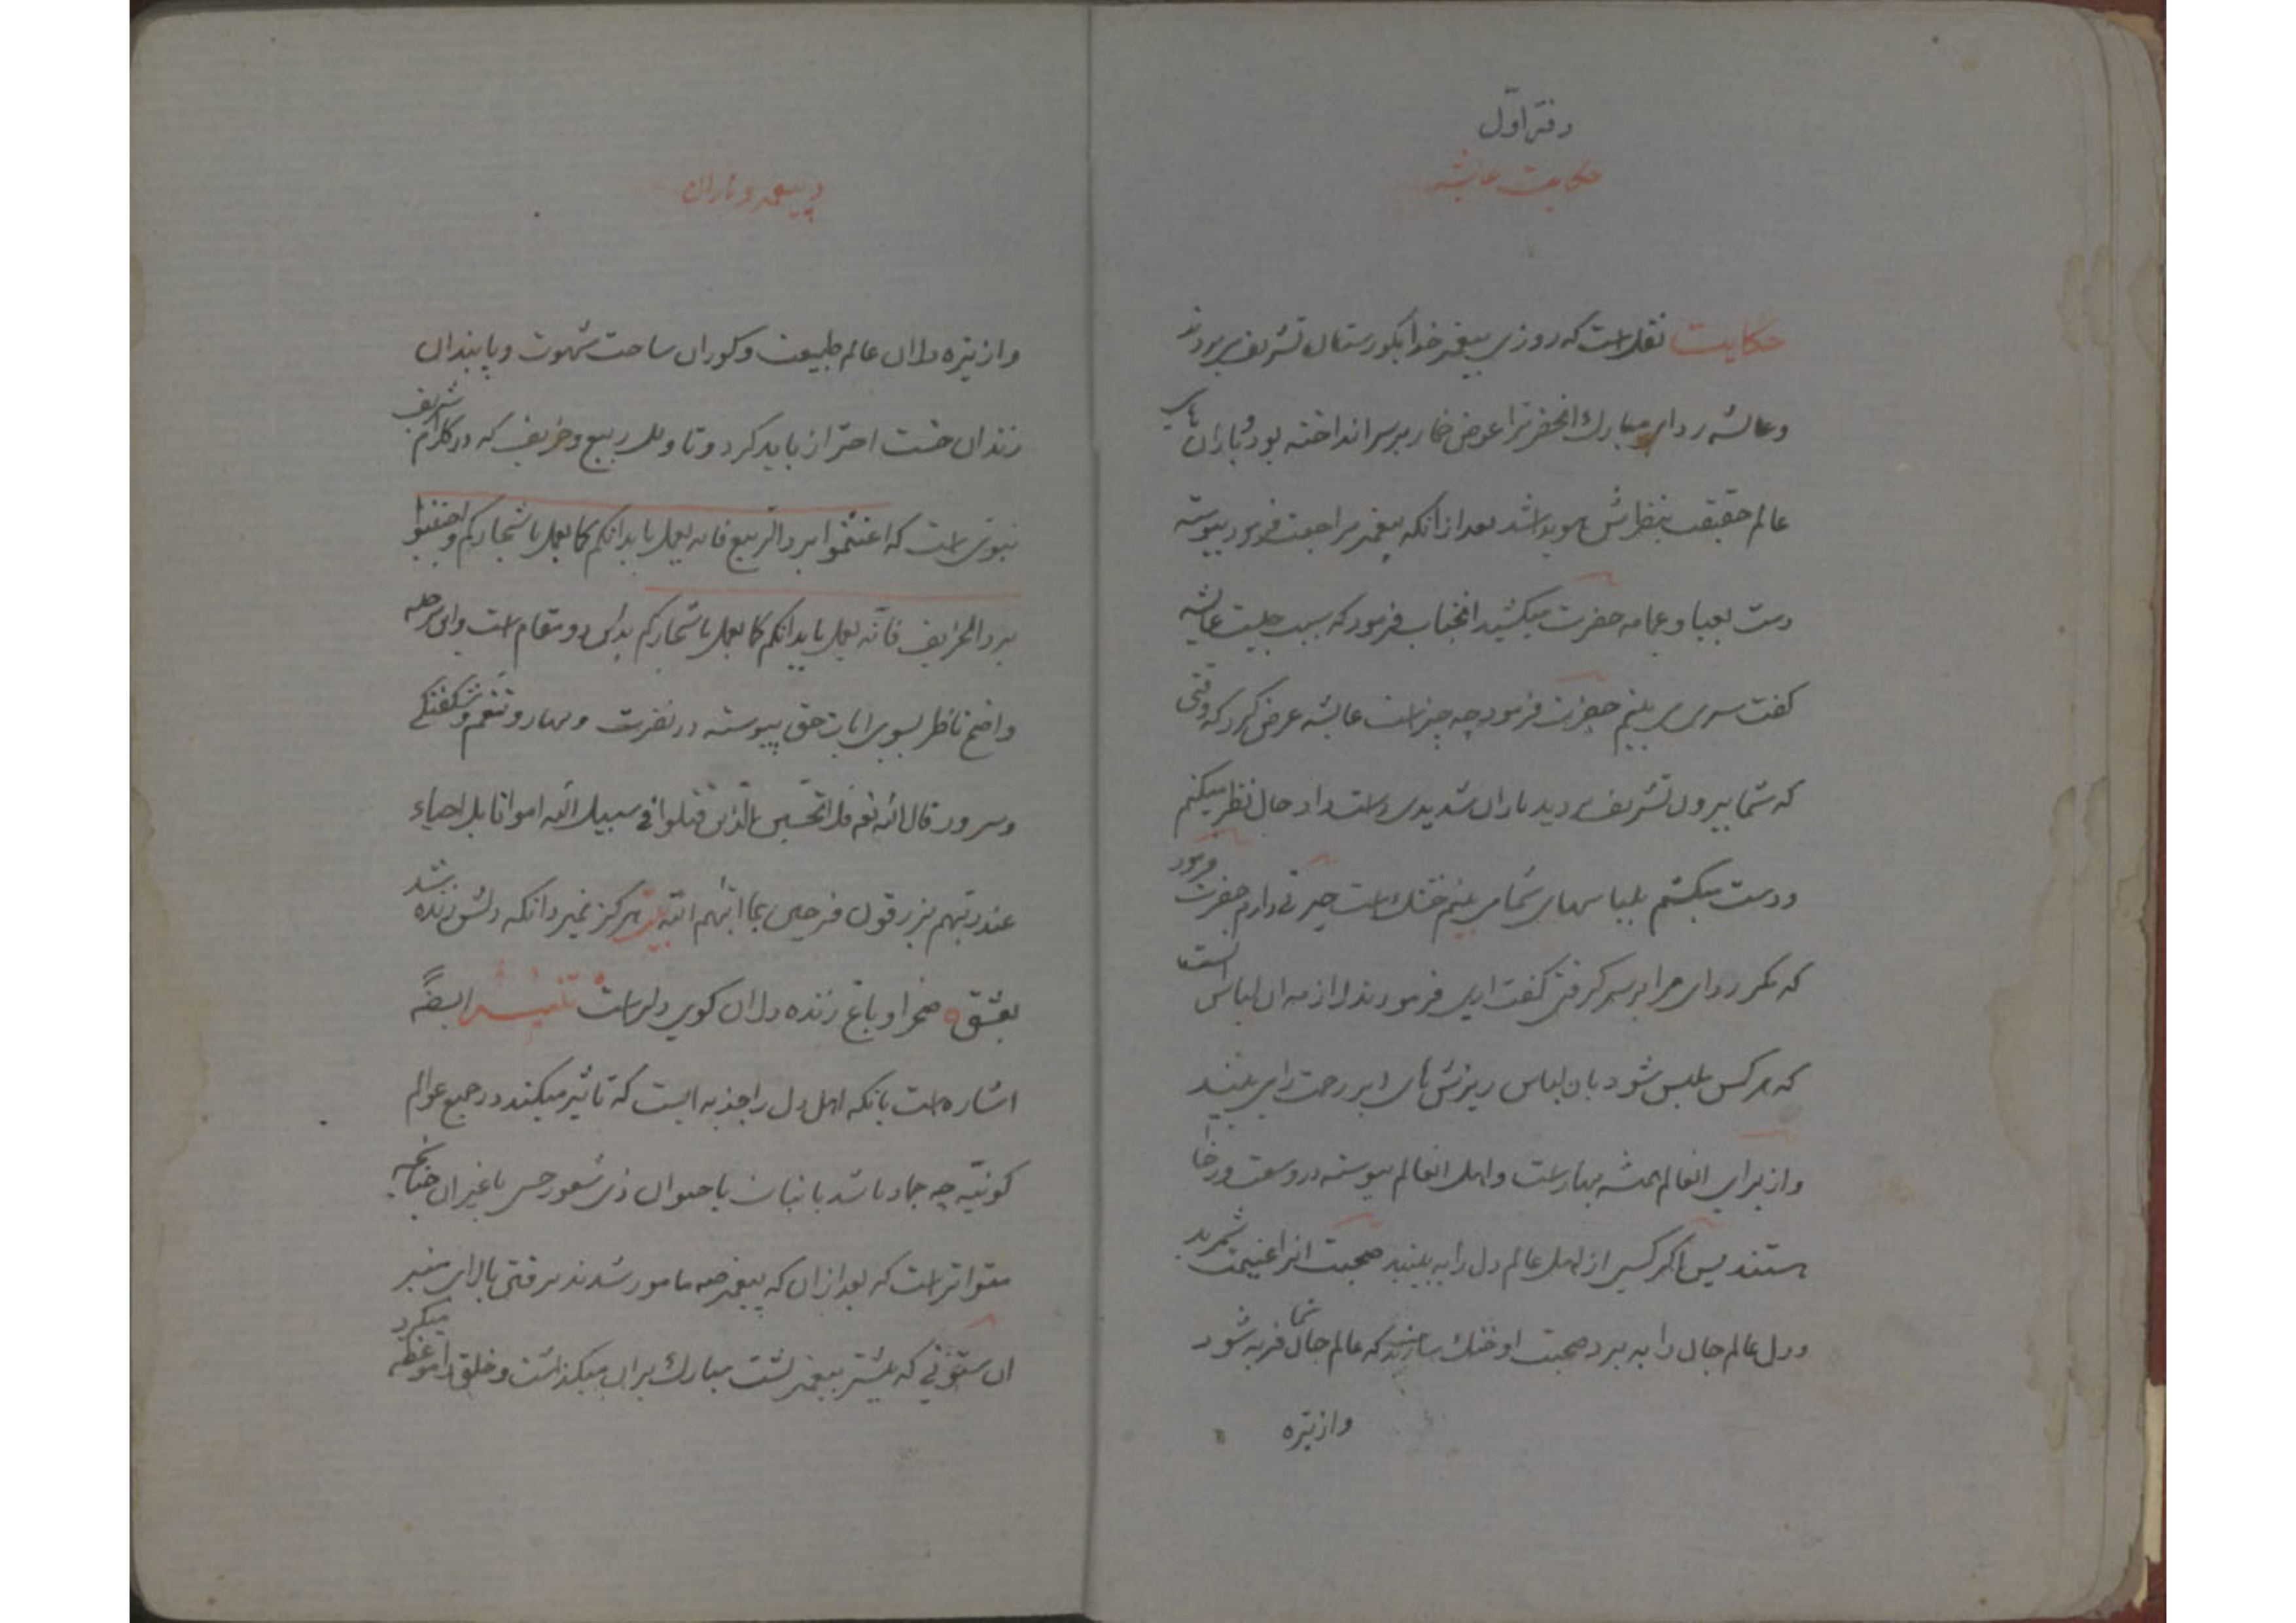 دفتر اوّل
حکایت عایشه
حکایت نقل است که روزی پیغمبر خدا بکورستان تشریف بردند
وعایشه ردای مبارک انحضرترا عوض خمار بر سر انداخته بود باران
عالم حقیقت بنظرش هویدا شد بعد از انکه پیغمبر مراجعت فرمود پیوسته
دست بعبا و عمامه حضرت میکشید انجناب فرمود که سبب چیست عایشه
کفت سری می بینم حضرت فرمود چه چیز است عایشه عرض کرد که وقتی
که شما بیرون تشریف بردید باران شدیدی است و در حال نظر میکنم
ودست میکشم بلباسهای شما می بینم خشک است حیرتی دارم حضرت فرمود
که مکر ردای مرا بر سر کرفتی کفت اری فرمودند از ان لباس است
که هر کس ملبس شود بان لباس ریزش های ابر رحمت را می بیند
واز برای انعالم همیشه بهار است و اهل انعالم پیوسته در وسعت و رخا
هستند پس اکر کسی از اهل عالم دل را به بینید صحبت انرا غنیمت شمرید
ودل عالم جان را به برد صحبت او خنک سازید که عالم جان شما فربه شود
واز تیره
وپیغمبر و باران
واز تیره دلان عالم طبیعت و کوران ساحت شهوت و پابندان
زندان خست احتراز باید کرد و تاویل ربیع و خریف که در کلام شریف
نبوی است که اغتنموا برد الربیع فانه یعمل بابدانکم کما یعمل باشجارکم واجتنبوا
برد الخریف فانّه یعمل بابدانکم کما یعمل باشجارکم بدین دو مقام است واین مرحله
واضح ناظر بسوی ایات حق پیوسته در نضرت و بهار و تنعم و شکفتکی
وسرور قال الله تعه فلا تحسبن الّذین قتلوا فی سبیل الله امواتا بل احیاء
عند ربهم یرزقون فرحین بما اتیهم الله بیت هرکز نمیرد انکه دلش زنده شد
بعشق ه صحرا و باغ زنده دلان کوی دلبر است تنبیه ایضًه
اشاره است بانکه اهل دل را جذبه ایست که تاثیر میکند در جمیع عوالم
کونیّه چه جماد باشد یا نبات یا حیوان ذی شعور حس یا غیر ان چنانچه
متواتر است که بعد از ان که پیغمبر صه مامور شدند برفتن بالای منبر
ان ستونی که پیشتر پیغمبر پشت مبارک بران میکذاشت و خلق را موعظه میکرد